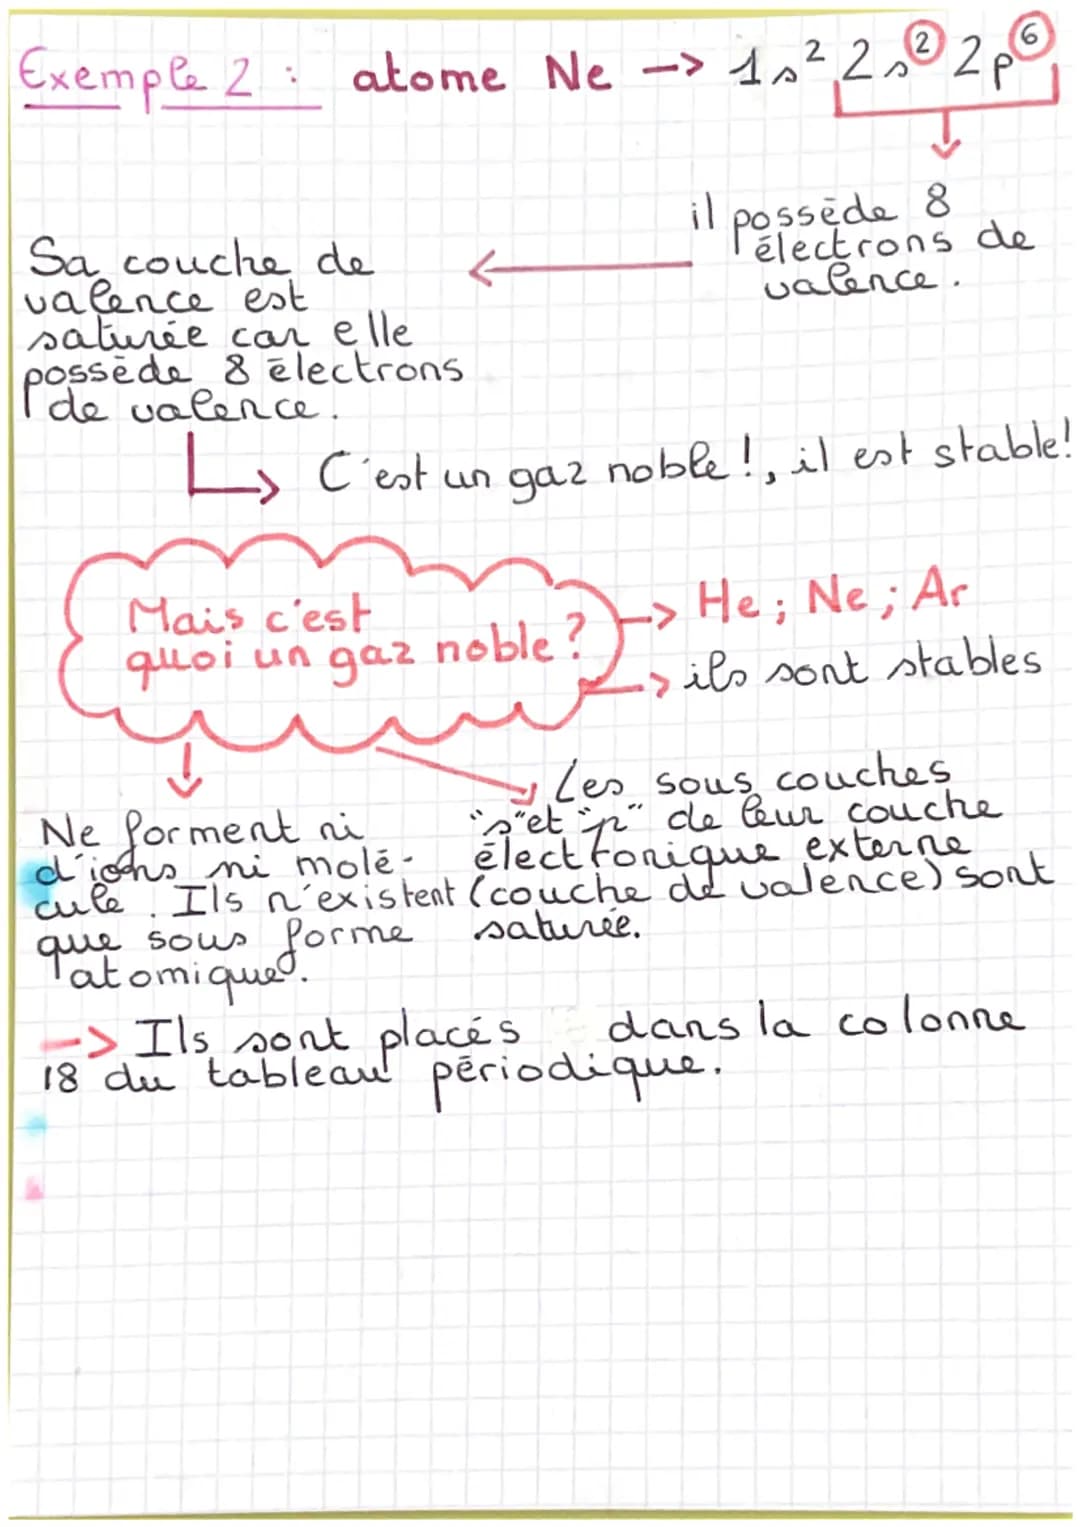 Exemple 2 : atome Ne -> 1s² 2s² 2p⁶
il possède 8
électrons de
valence.
Sa couche de
valence est
saturée car elle
possède 8 électrons
de valence.
C'est un gaz noble !, il est stable!
Mais c'est
quoi un gaz noble ?
-> He ; Ne ; Ar
-> ils sont stables
Ne forment ni
d'ions ni molé-
cule. Ils n'existent
que sous forme
atomique.
Les sous couches
"s" et "p" de leur couche
électronique externe
(couche de valence) sont
saturée.
-> Ils sont placés dans la colonne
18 du tableau périodique.